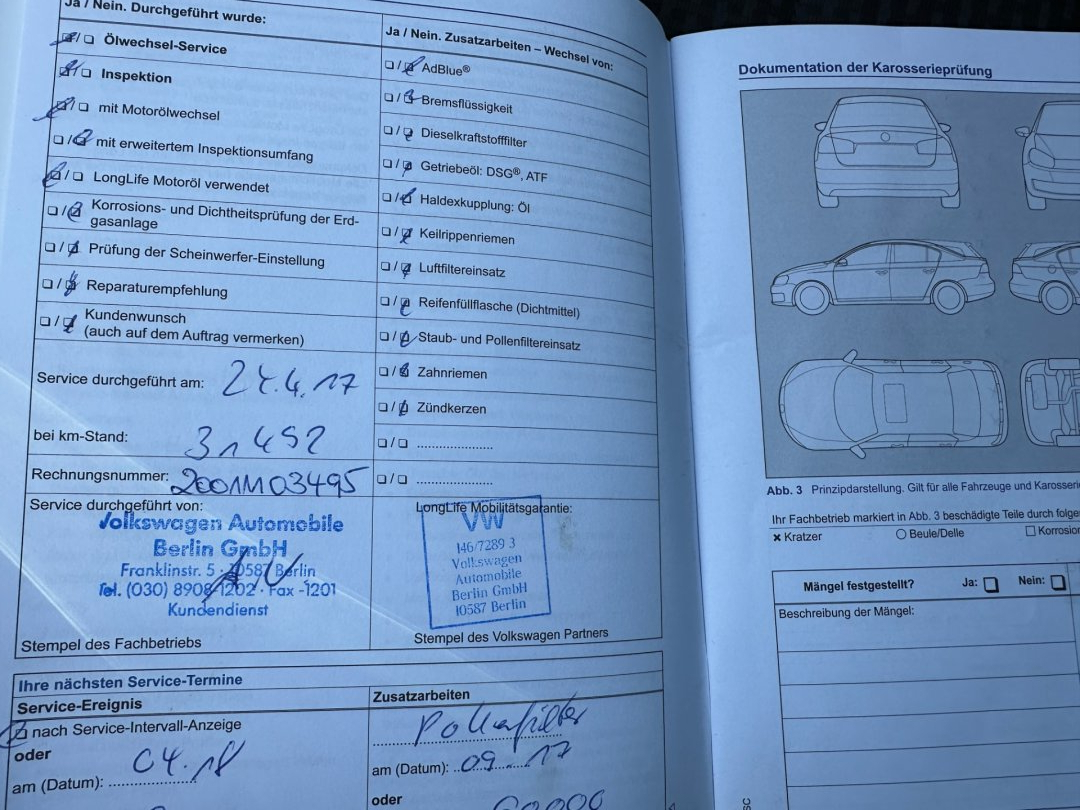 Ja / Nein. Durchgeführt wurde:
Ölwechsel-Service
Inspektion
mit Motorölwechsel
mit erweitertem Inspektionsumfang
LongLife Motoröl verwendet
Korrosions- und Dichtheitsprüfung der Erd-
gasanlage
Prüfung der Scheinwerfer-Einstellung
Reparaturempfehlung
Kundenwunsch
(auch auf dem Auftrag vermerken)
Service durchgeführt am: 24.4.17
bei km-Stand: 31452
Rechnungsnummer: 2001M03495
Service durchgeführt von:
Volkswagen Automobile
Berlin GmbH
Franklinstr. 5 · 10587 Berlin
Tel. (030) 8908-1202 · Fax -1201
Kundendienst
Stempel des Fachbetriebs
Ja / Nein. Zusatzarbeiten – Wechsel von:
AdBlue®
Bremsflüssigkeit
Dieselkraftstofffilter
Getriebeöl: DSG®, ATF
Haldexkupplung: Öl
Keilrippenriemen
Luftfiltereinsatz
Reifenfüllflasche (Dichtmittel)
Staub- und Pollenfiltereinsatz
Zahnriemen
Zündkerzen
LongLife Mobilitätsgarantie:
VW
146/7289 3
Volkswagen
Automobile
Berlin GmbH
10587 Berlin
Stempel des Volkswagen Partners
Ihre nächsten Service-Termine
Service-Ereignis
nach Service-Intervall-Anzeige
oder
am (Datum): 04.18
Zusatzarbeiten
Pollenfilter
am (Datum): 09.17
oder
Dokumentation der Karosserieprüfung
Abb. 3 Prinzipdarstellung. Gilt für alle Fahrzeuge und Karosserie
Ihr Fachbetrieb markiert in Abb. 3 beschädigte Teile durch folge
Kratzer
Beule/Delle
Korrosion
Mängel festgestellt? Ja: Nein:
Beschreibung der Mängel: